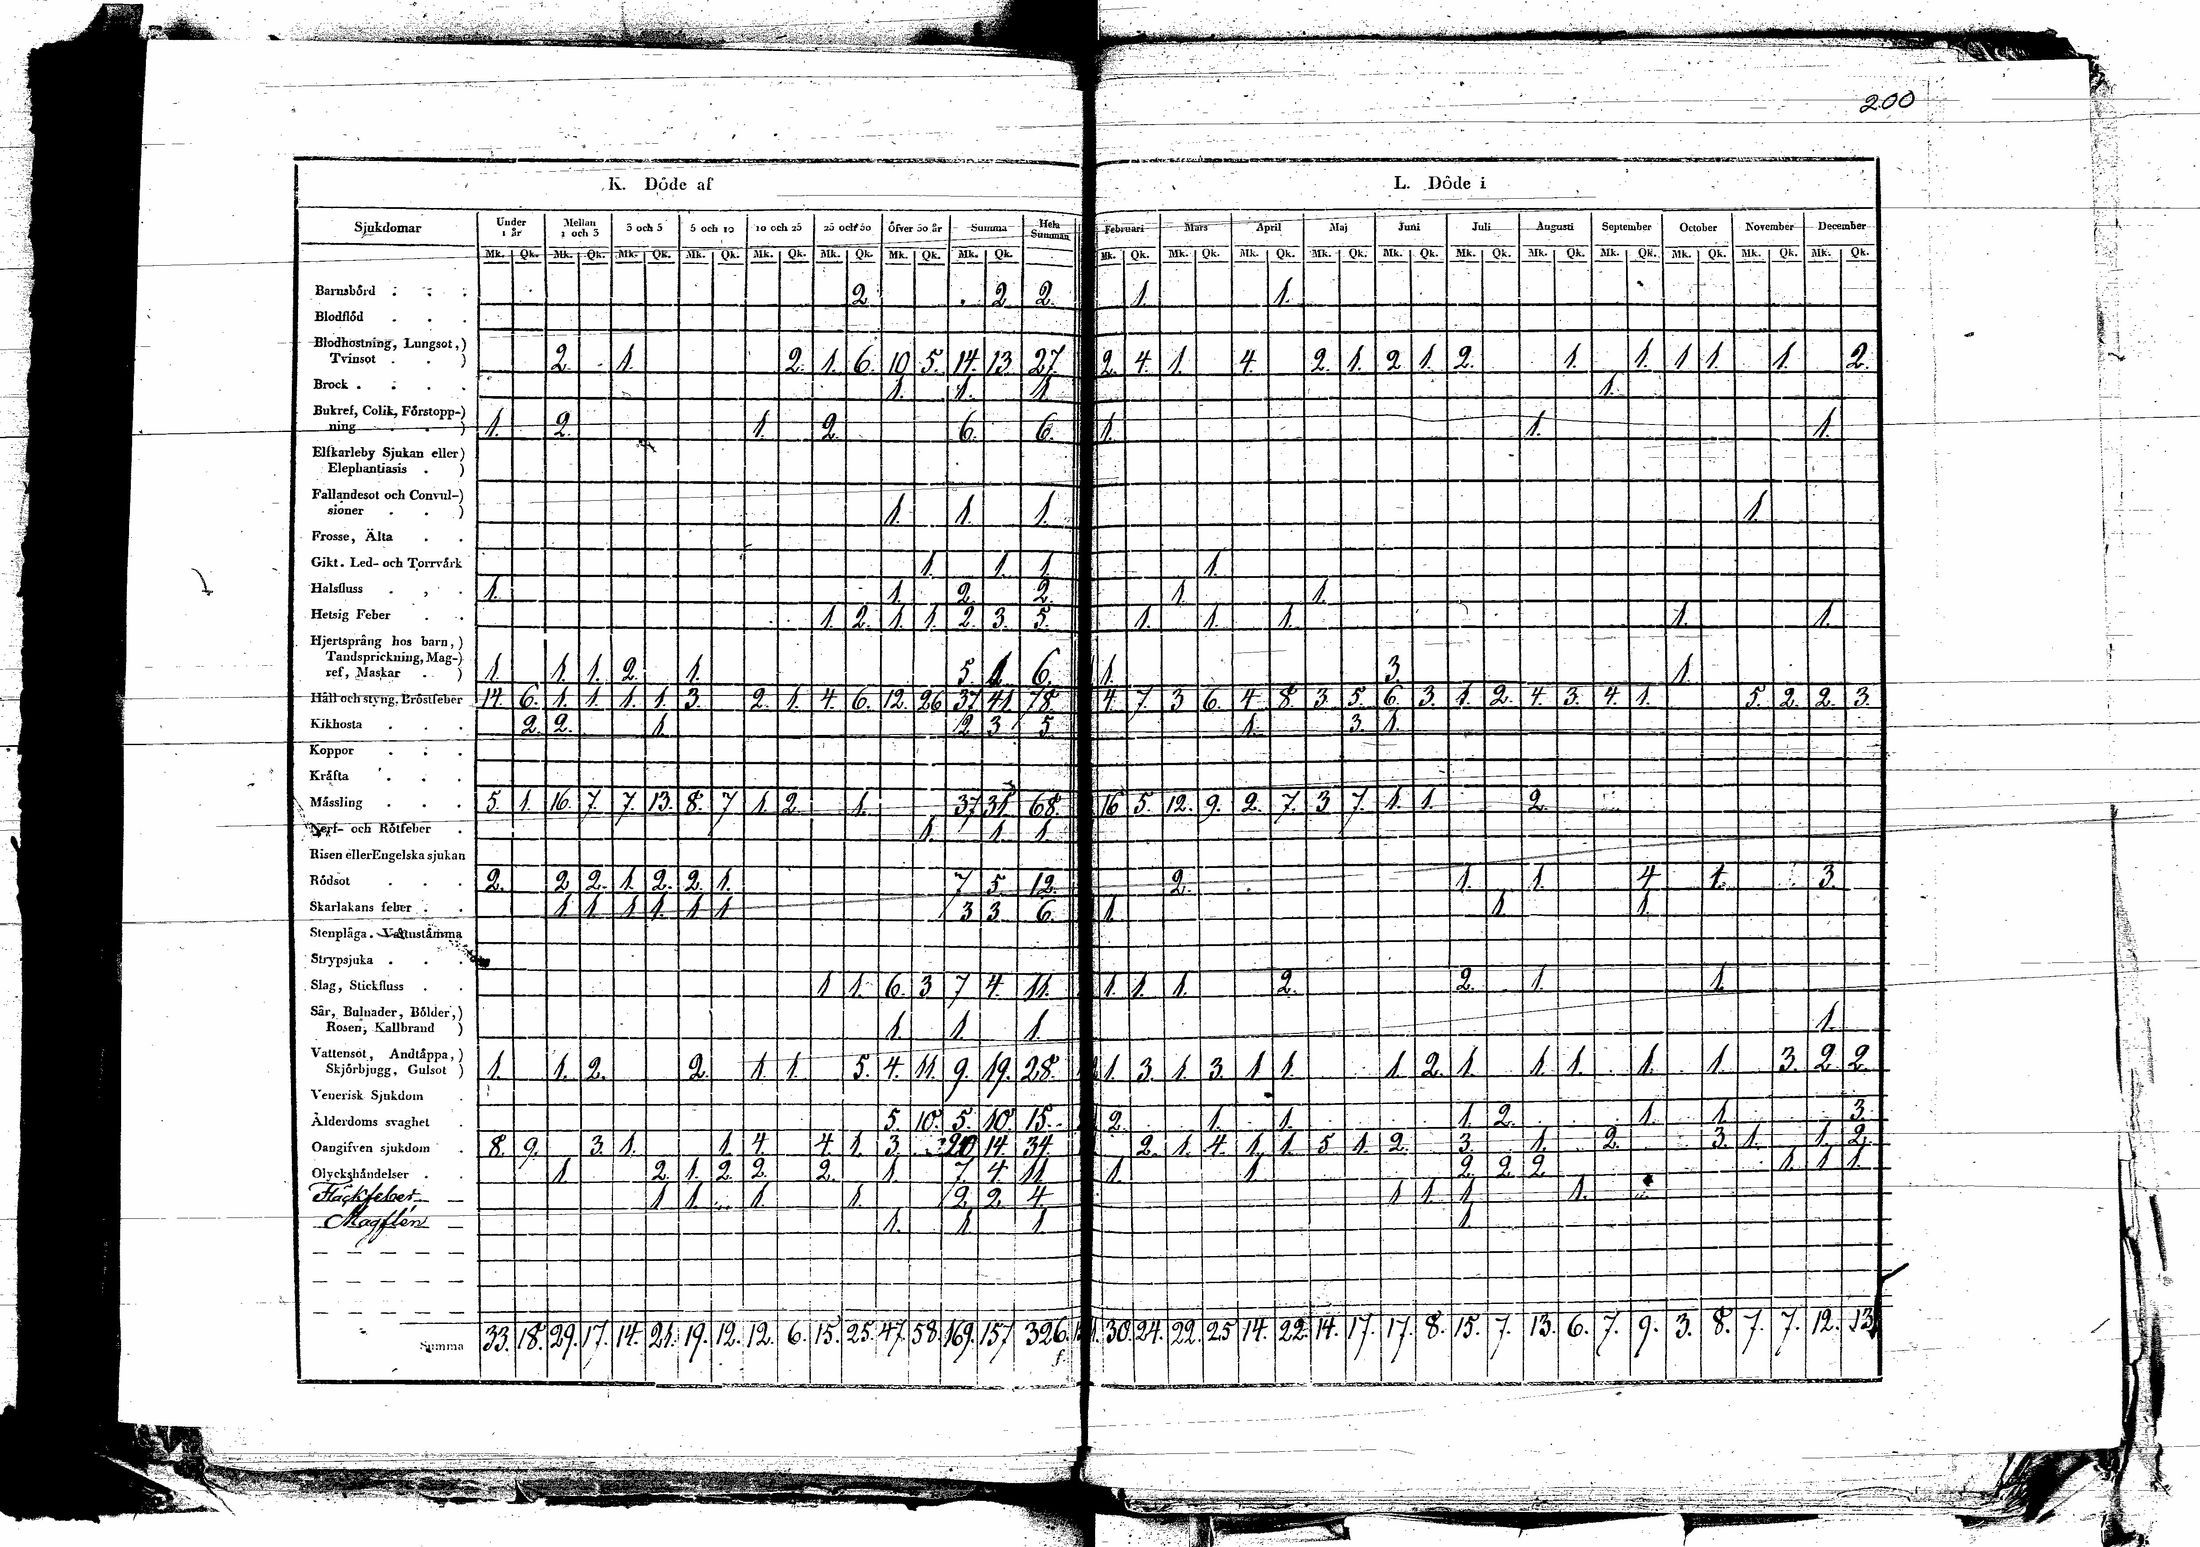 200
K. Döde af
L. Döde i
Sjukdomar | Under 1 år | Mellan 1 och 3 | 3 och 5 | 5 och 10 | 10 och 25 | 25 och 50 | Öfver 50 år | Summa | Hela Summan | Februari | Mars | April | Maj | Junii | Julii | Augusti | September | October | November | December
Mk. Qk. Mk. Qk. Mk. Qk. Mk. Qk. Mk. Qk. Mk. Qk. Mk. Qk. Mk. Qk. Mk. Qk. Mk. Qk. Mk. Qk. Mk. Qk. Mk. Qk. Mk. Qk. Mk. Qk. Mk. Qk. Mk. Qk. Mk. Qk. Mk. Qk.
Barnsbörd . . . 2 2 2. 1. 1.
Blodflöd . . .
Blodhostning, Lungsot,)
Tvinsot . . ) 2. 1. 2. 1. 6. 10 5. 14. 13. 27. 2. 4. 1. 4. 2. 1. 2 1. 2. 1. 1. 1 1. 1. 2.
Brock . . . . 1. 1. 1 1.
Bukref, Colik, Förstopp-)
ning . . ) 1. 2. 1. 2. 6. 6. 1. 1. 1.
Elfkarleby Sjukan eller)
Elephantiasis . )
Fallandesot och Convul-)
sioner . . ) 1. 1. 1. 1.
Frosse, Älta . .
Gikt. Led- och Torrvärk 1. 1. 1. 1.
Halsfluss . , . 1. 1. 2. 2. 1. 1.
Hetsig Feber . . 1. 2. 1. 1. 2. 3. 5. 1. 1. 1. 1. 1.
Hjertsprång hos barn,)
Tandsprickning, Mag-)
ref, Maskar . ) 1. 1. 1. 2. 1. 5 1 6. 1. 3. 1.
Håll och styng, Bröstfeber 14. 6. 1. 1. 1. 1. 3. 2. 1. 4. 6. 12. 26 37 41. 78. 4. 7. 3 6. 4. 8. 3. 5. 6. 3. 1. 2. 4. 3. 4. 1. 5. 2. 2. 3.
Kikhosta . . . 2. 2. 1. 2 3 5. 1. 3. 1.
Koppor . . .
Kräfta . . .
Mässling . . . 5. 1. 16. 7. 7. 13. 8. 7 1. 2. 1. 37 31. 68. 16 5. 12. 9. 2. 7. 3 7. 1. 1. 2.
Nerf- och Rötfeber . 1. 1. 1.
Risen eller Engelska sjukan
Rödsot . . . 2. 2 2. 1. 2. 2. 1. 7 5. 12. 2. 1. 1. 4 1. 3.
Skarlakans feber . . 1. 1. 1. 1. 1. 1. 3 3. 6. 1. 1. 1.
Stenplåga. Vattustämma
Strypsjuka . . .
Slag, Stickfluss . . 1 1. 6. 3 7 4. 11. 1. 1. 1. 2. 2. 1. 1.
Sår, Bulnader, Bölder,)
Rosen, Kallbrand ) 1. 1. 1. 1.
Vattensot, Andtäppa,)
Skjörbjugg, Gulsot ) 1. 1. 2. 2. 1. 1. 5. 4. 11. 9. 19. 28. 1. 3. 1. 3. 1. 1. 1. 2. 1. 1. 1. 1. 1. 3. 2. 2.
Venerisk Sjukdom .
Ålderdoms svaghet . 5. 10. 5. 10. 15. 2. 1. 1. 1. 2. 1. 1. 3.
Oangifven sjukdom . 8. 9. 3. 1. 1. 4. 4. 1. 3. 20 14. 34. 2. 1. 4. 1. 1. 5 1. 2. 3. 1. 2. 3. 1. 1. 2.
Olyckshändelser . . 1 2. 1. 2 2. 2. 1. 7. 4. 11. 1. 1. 2. 2 2 1. 1. 1.
Fläckfeber 1. 1. 1. 1. 2. 2. 4. 1 1. 1. 1.
Magflén 1. 1. 1. 1.
Summa 33. 18. 29. 17. 14. 21. 19. 12. 12. 6. 15. 25. 47. 58. 169. 157 326. 30. 24. 22. 25 14. 22. 14. 17. 17. 8. 15. 7. 13. 6. 7. 9. 3. 8. 7. 7. 12. 13